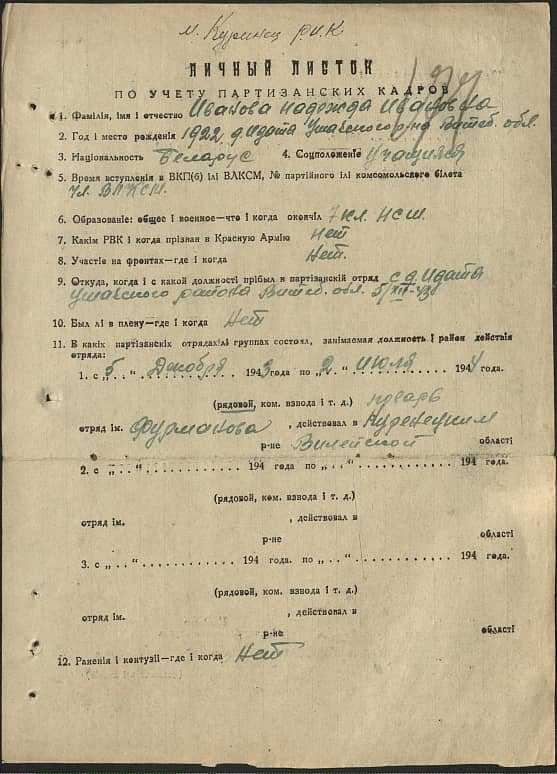 м. Куринец Р.И.К
ЛИЧНЫЙ ЛИСТОК
ПО УЧЕТУ ПАРТИЗАНСКИХ КАДРОВ
1. Фамілія, імя і отчество Иванова Надежда Ивановна
2. Год і место рожденія 1922, д. Идата Ушакского р-на Витеб. обл.
3. Національность Беларус 4. Соцположеніе Учащияся
5. Время вступленія в ВКП(б) ілі ВЛКСМ, № партійного ілі комсомольского білета
Чл. ВЛКСМ.
6. Образованіе: общее і военное—что і когда окончіл 7 кл. НСШ.
7. Какім РВК і когда прізван в Красную Армію Нет
8. Участіе на фронтах—где і когда Нет.
9. Откуда, когда і с какой должності прібыл в партізанскій отряд с д. Идаты
Ушакского района Витеб. обл. 5/XII-43г
10. Был лі в плену—где і когда Нет
11. В какіх партізанскіх отрядах ілі группах состоял, занімаемая должность і район действія
отряда:
1. с „5“ Декабря 1943 года по „2“ Июля 1944 года.
(рядовой, ком. взвода і т. д.) пекарь
отряд ім. Фурманова, действовал в
р-не Вилейской області
2. с „..“ ............ 194 года по „..“ ............ 194 года.
(рядовой, ком. взвода і т. д.)
отряд ім. , действовал в
р-не області
3. с „..“ ............ 194 года. по „..“ ............ 194 года.
(рядовой, ком. взвода і т. д.)
отряд ім. , действовал в
р-не області
12. Раненія і контузіі—где і когда Нет